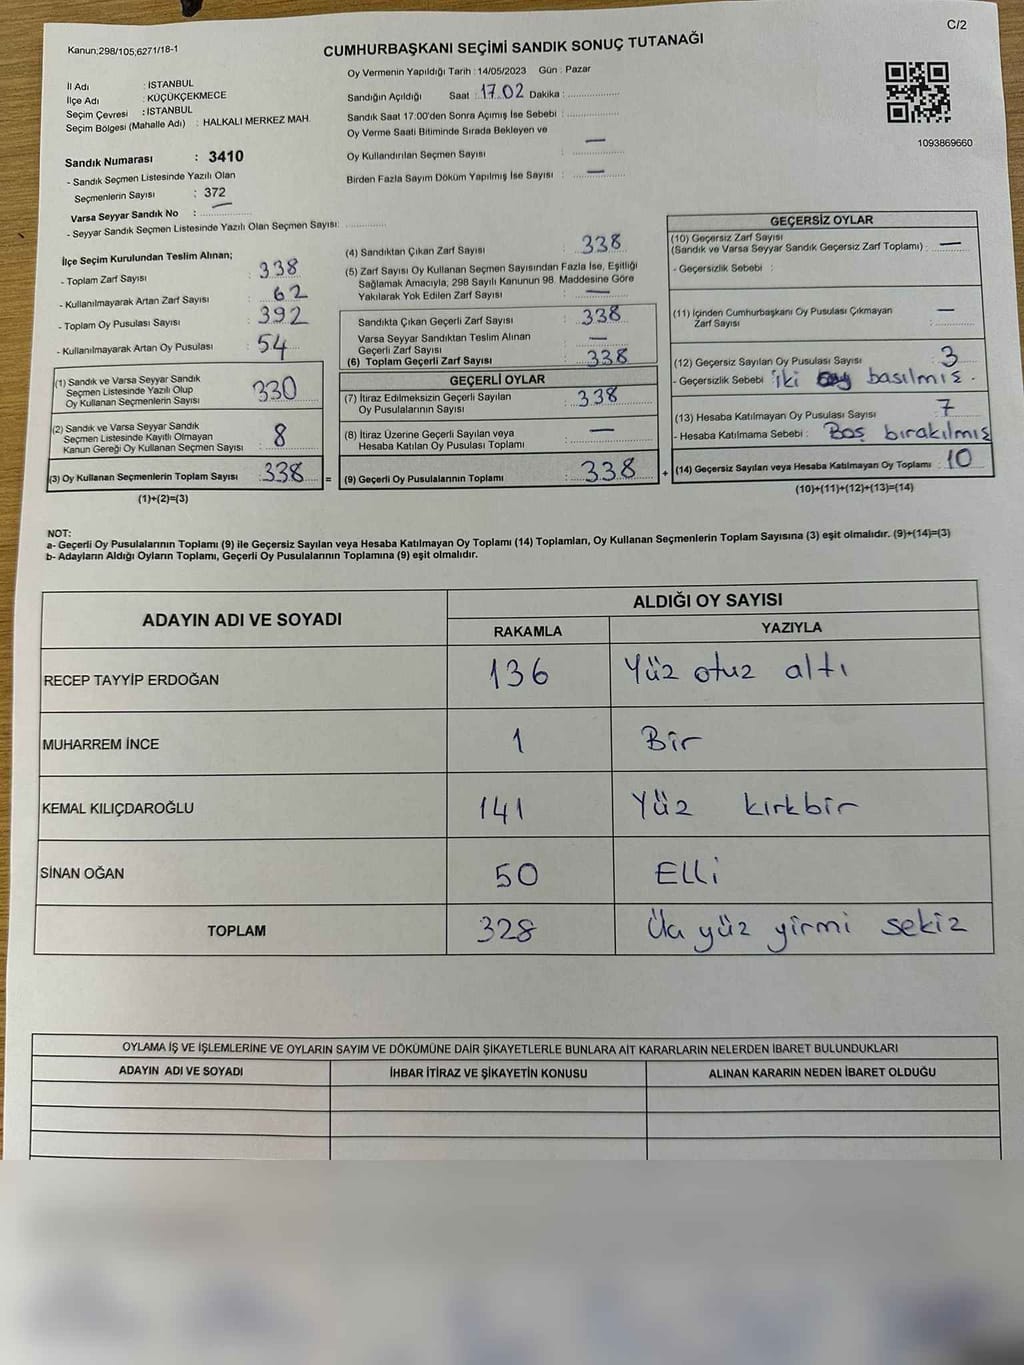 C/2
Kanun;298/105,6271/18-1
CUMHURBAŞKANI SEÇİMİ SANDIK SONUÇ TUTANAĞI
İl Adı : İSTANBUL
İlçe Adı : KÜÇÜKÇEKMECE
Seçim Çevresi : İSTANBUL
Seçim Bölgesi (Mahalle Adı) : HALKALI MERKEZ MAH.
Sandık Numarası : 3410
- Sandık Seçmen Listesinde Yazılı Olan
Seçmenlerin Sayısı : 372
Varsa Seyyar Sandık No : —
- Seyyar Sandık Seçmen Listesinde Yazılı Olan Seçmen Sayısı:
Oy Vermenin Yapıldığı Tarih : 14/05/2023 Gün : Pazar
Sandığın Açıldığı Saat : 17.02 Dakika :
Sandık Saat 17:00'den Sonra Açımış İse Sebebi :
Oy Verme Saati Bitiminde Sırada Bekleyen ve
Oy Kullandırılan Seçmen Sayısı : —
Birden Fazla Sayım Döküm Yapılmış İse Sayısı : —
1093869660
İlçe Seçim Kurulundan Teslim Alınan;
- Toplam Zarf Sayısı : 338
- Kullanılmayarak Artan Zarf Sayısı : 62
- Toplam Oy Pusulası Sayısı : 392
- Kullanılmayarak Artan Oy Pusulası : 54
(1) Sandık ve Varsa Seyyar Sandık
Seçmen Listesinde Yazılı Olup
Oy Kullanan Seçmenlerin Sayısı : 330
(2) Sandık ve Varsa Seyyar Sandık
Seçmen Listesinde Kayıtlı Olmayan
Kanun Gereği Oy Kullanan Seçmen Sayısı : 8
(3) Oy Kullanan Seçmenlerin Toplam Sayısı : 338 =
(1)+(2)=(3)
(4) Sandıktan Çıkan Zarf Sayısı : 338
(5) Zarf Sayısı Oy Kullanan Seçmen Sayısından Fazla İse, Eşitliği
Sağlamak Amacıyla; 298 Sayılı Kanunun 98. Maddesine Göre
Yakılarak Yok Edilen Zarf Sayısı : —
Sandıkta Çıkan Geçerli Zarf Sayısı : 338
Varsa Seyyar Sandıktan Teslim Alınan
Geçerli Zarf Sayısı : —
(6) Toplam Geçerli Zarf Sayısı : 338
GEÇERLİ OYLAR
(7) İtiraz Edilmeksizin Geçerli Sayılan
Oy Pusulalarının Sayısı : 338
(8) İtiraz Üzerine Geçerli Sayılan veya
Hesaba Katılan Oy Pusulası Toplamı : —
(9) Geçerli Oy Pusulalarının Toplamı : 338 +
GEÇERSİZ OYLAR
(10) Geçersiz Zarf Sayısı
(Sandık ve Varsa Seyyar Sandık Geçersiz Zarf Toplamı) : —
- Geçersizlik Sebebi :
(11) İçinden Cumhurbaşkanı Oy Pusulası Çıkmayan
Zarf Sayısı : —
(12) Geçersiz Sayılan Oy Pusulası Sayısı : 3
- Geçersizlik Sebebi : iki basılmış .
(13) Hesaba Katılmayan Oy Pusulası Sayısı : 7
- Hesaba Katılmama Sebebi : Boş bırakılmış
(14) Geçersiz Sayılan veya Hesaba Katılmayan Oy Toplamı : 10
(10)+(11)+(12)+(13)=(14)
NOT:
a- Geçerli Oy Pusulalarının Toplamı (9) ile Geçersiz Sayılan veya Hesaba Katılmayan Oy Toplamı (14) Toplamları, Oy Kullanan Seçmenlerin Toplam Sayısına (3) eşit olmalıdır. (9)+(14)=(3)
b- Adayların Aldığı Oyların Toplamı, Geçerli Oy Pusulalarının Toplamına (9) eşit olmalıdır.
ADAYIN ADI VE SOYADI ALDIĞI OY SAYISI
RAKAMLA YAZIYLA
RECEP TAYYİP ERDOĞAN 136 Yüz otuz altı
MUHARREM İNCE 1 Bir
KEMAL KILIÇDAROĞLU 141 Yüz kırkbir
SİNAN OĞAN 50 Elli
TOPLAM 328 yüz yirmi sekiz
OYLAMA İŞ VE İŞLEMLERİNE VE OYLARIN SAYIM VE DÖKÜMÜNE DAİR ŞİKAYETLERLE BUNLARA AİT KARARLARIN NELERDEN İBARET BULUNDUKLARI
ADAYIN ADI VE SOYADI İHBAR İTİRAZ VE ŞİKAYETİN KONUSU ALINAN KARARIN NEDEN İBARET OLDUĞU